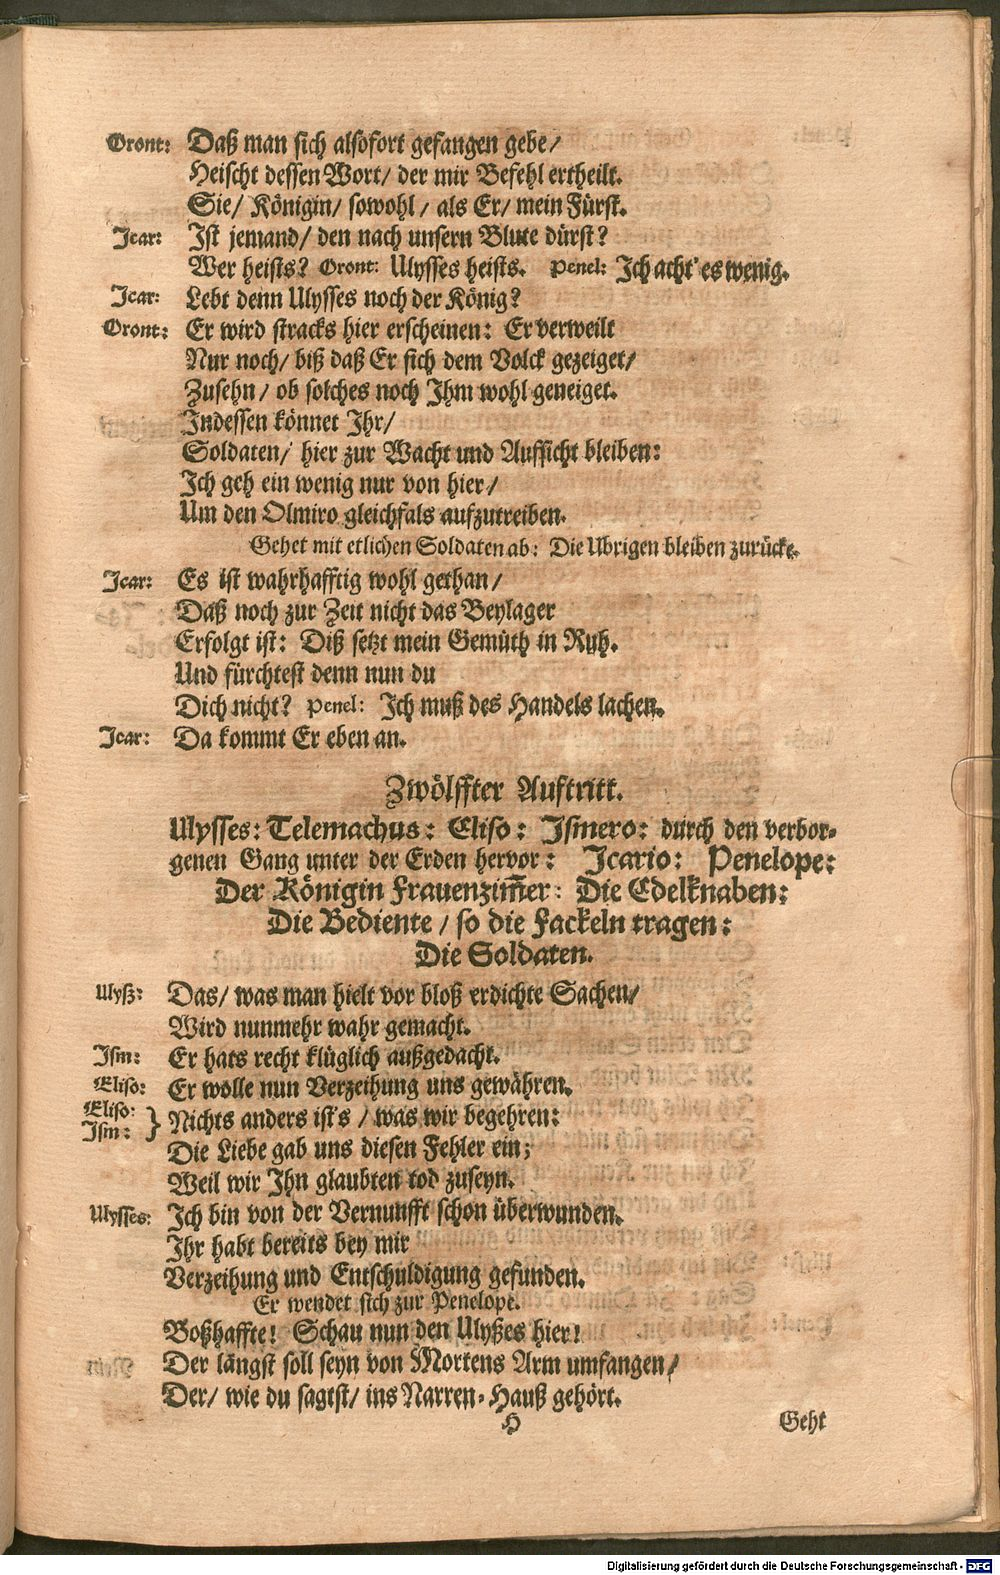 Oront: Daß man sich alsofort gefangen gebe/
Heischt dessen Wort/ der mir Befehl ertheilt.
Sie/ Königin/ sowohl/ als Er/ mein Fürst.
Icar: Ist jemand/ den nach unsern Blute dürst?
Wer heists? Oront: Ulysses heists. Penel: Ich acht' es wenig.
Icar: Lebt denn Ulysses noch der König?
Oront: Er wird stracks hier erscheinen: Er verweilt
Nur noch/ biß daß Er sich dem Volck gezeiget/
Zusehn/ ob solches noch Ihm wohl geneiget.
Indessen könnet Ihr/
Soldaten/ hier zur Wacht und Auffsicht bleiben:
Ich geh ein wenig nur von hier/
Um den Olmiro gleichfals aufzutreiben.
Gehet mit etlichen Soldaten ab: Die Ubrigen bleiben zurücke.
Icar: Es ist wahrhafftig wohl gethan/
Daß noch zur Zeit nicht das Beylager
Erfolgt ist: Diß setzt mein Gemüth in Ruh.
Und fürchtest denn nun du
Dich nicht? Penel: Ich muß des Handels lachen.
Icar: Da kommt Er eben an.
Zwölffter Auftritt.
Ulysses: Telemachus: Eliso: Ismero: durch den verbor-
genen Gang unter der Erden hervor: Icario: Penelope:
Der Königin Frauenzim̃er: Die Edelknaben:
Die Bediente/ so die Fackeln tragen:
Die Soldaten.
Ulyß: Das/ was man hielt vor bloß erdichte Sachen/
Wird nunmehr wahr gemacht.
Ism: Er hats recht klüglich außgedacht.
Eliso: Er wolle nun Verzeihung uns gewähren.
Eliso: Ism: } Nichts anders ist's/ was wir begehren:
Die Liebe gab uns diesen Fehler ein;
Weil wir Ihn glaubten tod zuseyn.
Ulysses: Ich bin von der Vernunfft schon überwunden.
Ihr habt bereits bey mir
Verzeihung und Entschuldigung gefunden.
Er wendet sich zur Penelope.
Boßhaffte! Schau nun den Ulyßes hier!
Der längst soll seyn von Mortens Arm umfangen/
Der/ wie du sagtst/ ins Narren-Hauß gehört.
H Geht
Digitalisierung gefördert durch die Deutsche Forschungsgemeinschaft - DFG